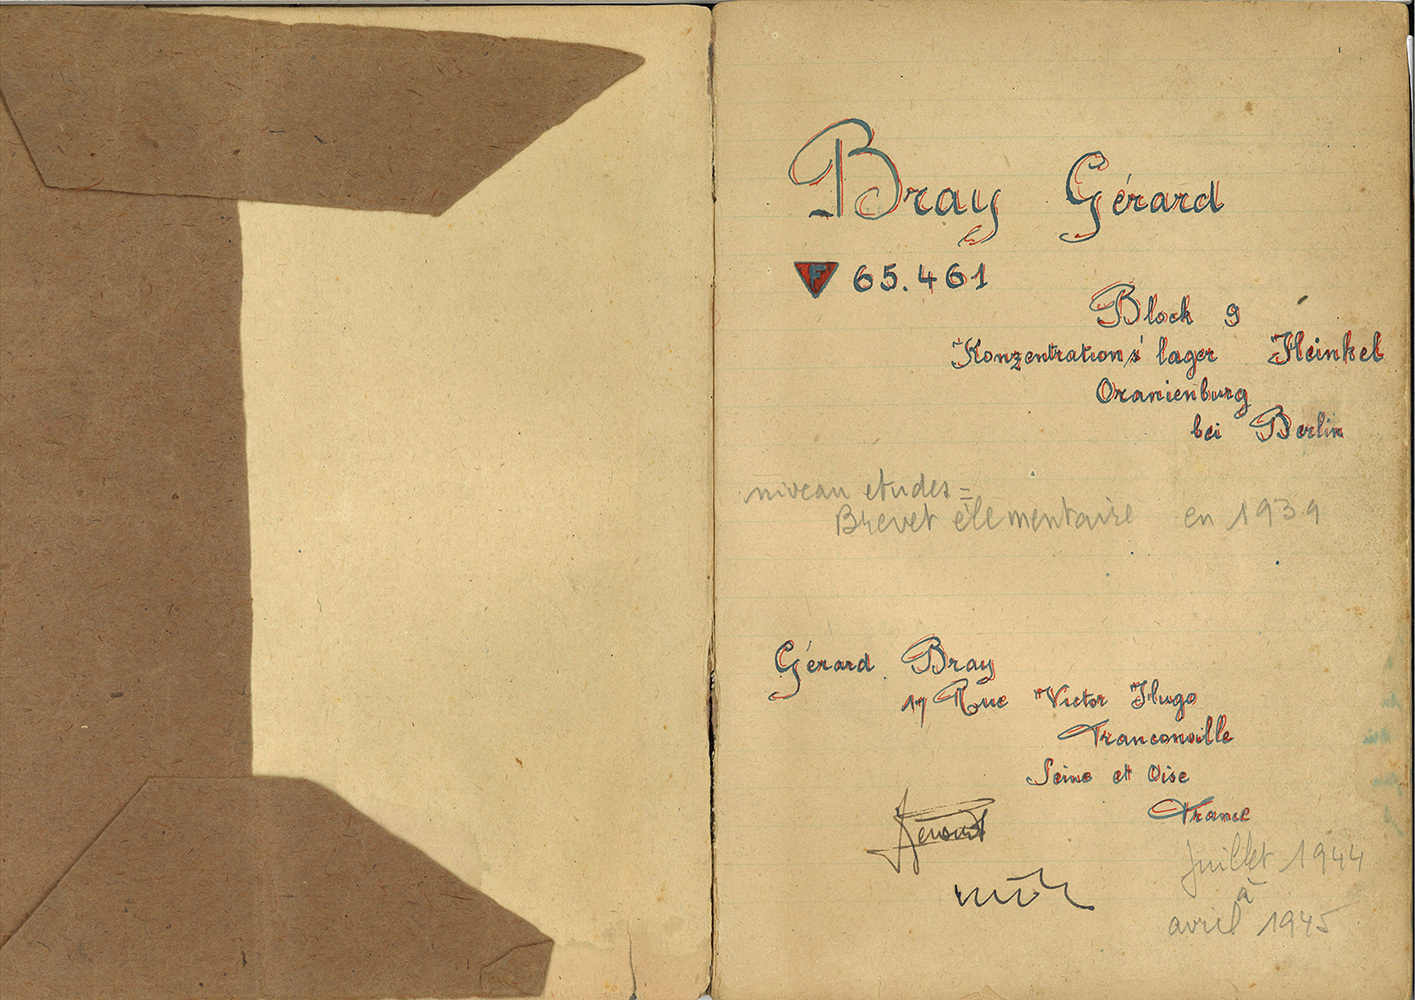 Bray Gérard
F 65.461
Block 9
Konzentrations'lager Heinkel
Oranienburg
bei Berlin
niveau etudes =
Brevet élémentaire en 1939
Gérard Bray
17 Rue Victor Hugo
Franconville
Seine et Oise
France
Juillet 1944
à
avril 1945